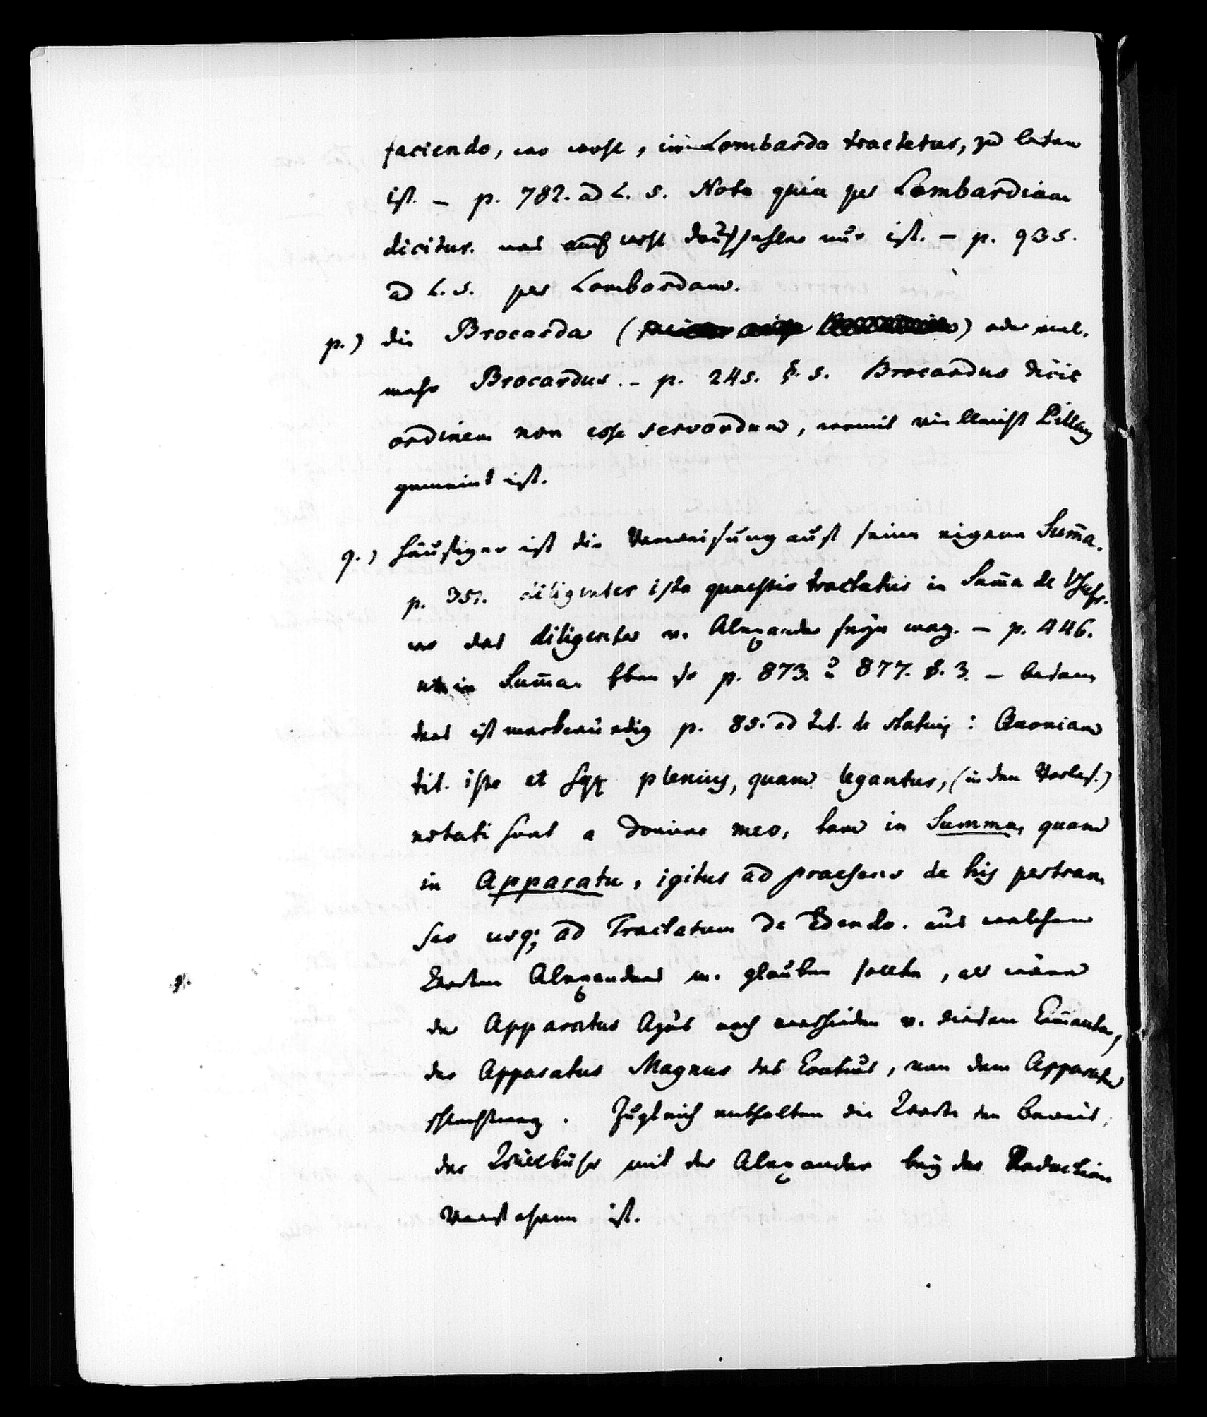 faciendo, wo wohl, in Lombarda tractatur, zu lesen
ist. — p. 782. ad L. 5. Nota quia per Lombardiam
dicitur. was auch wohl Druckfehler nur ist. — p. 935.
ad L. 5. per Lombardam.
p.) die Brocarda ( ) oder viel-
mehr Brocardus. — p. 245. §. 5. Brocardus dicit
ordinem non esse servandum, womit vielleicht Pilleus
gemeint ist.
q.) häufiger ist die Verweisung auf seine eigene Sum̄a.
p. 351. diligenter ista quaestio tractatur in Sum̄a de
wo das diligenter v. Alexander seyn mag. — p. 446.
ut in Summa. Eben so p. 873. 877. §. 3. — besonders
das ist merkwürdig p. 85. ad tit. de : Quoniam
tit. iste et plenius, quam legantur, (in den Vorles.)
notati sunt a domino meo, tam in Summa, quam
in Apparatu, igitur ad praesens de his pertran-
seo usq; ad Tractatum de Edendo. aus welchem
Worten Alexanders m. glauben sollte, als wäre
der Apparatus Azos noch verschieden v. diesem Com̄entar,
der Apparatus Magnus des Contius, von dem Apparatu
. Zugleich enthalten die Worte den Beweis,
der Willkühr mit der Alexander bey der Redaction
verfahren ist.